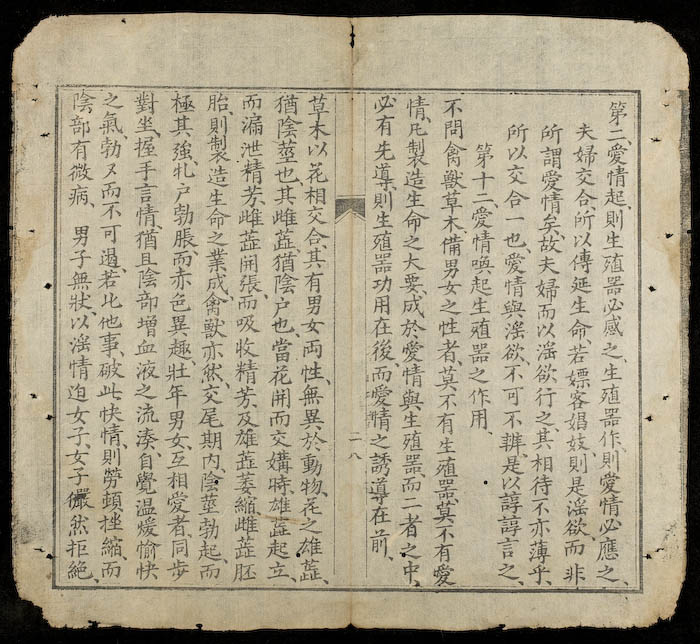 第二、愛情起、則生殖器必感之、生殖器作、則愛情必應之、
夫婦交合、所以傳延生命、若嫖客娼妓、則是淫欲、而非
所謂愛情矣、故夫婦而以淫欲行之、其相待不亦薄乎、
所以交合一也、愛情與淫欲、不可不辨、是以諄諄言之、
第十二、愛情喚起生殖器之作用、
不問禽獸草木、備男女之性者、莫不有生殖器、莫不有愛
情、凡製造生命之大要、成於愛情與生殖器、而二者之中、
必有先導、則生殖器功用在後、而愛情之誘導在前、
二八
草木以花相交合、其有男女両性、無異於動物、花之雄蕋、
猶陰莖也、其雌蕋、猶陰户也、當花開而交媾時、雄蕋起立、
而漏泄精芳、雌蕋開張、而吸收精芳、及雄蕋萎縮、雌蕋胚
胎、則製造生命之業成、禽獸亦然、交尾期内、陰莖勃起、而
極其強、牝户勃脹、而赤色異趣、壯年男女、互相愛者、同步
對坐、握手言情、猶且陰部增血液之流湊、自覺温煖愉快
之氣勃々而不可遏、若比他事、破此快情、則勞頓挫縮、而
陰部有微病、 男子無狀、以淫情迫女子、女子儼然拒絶、